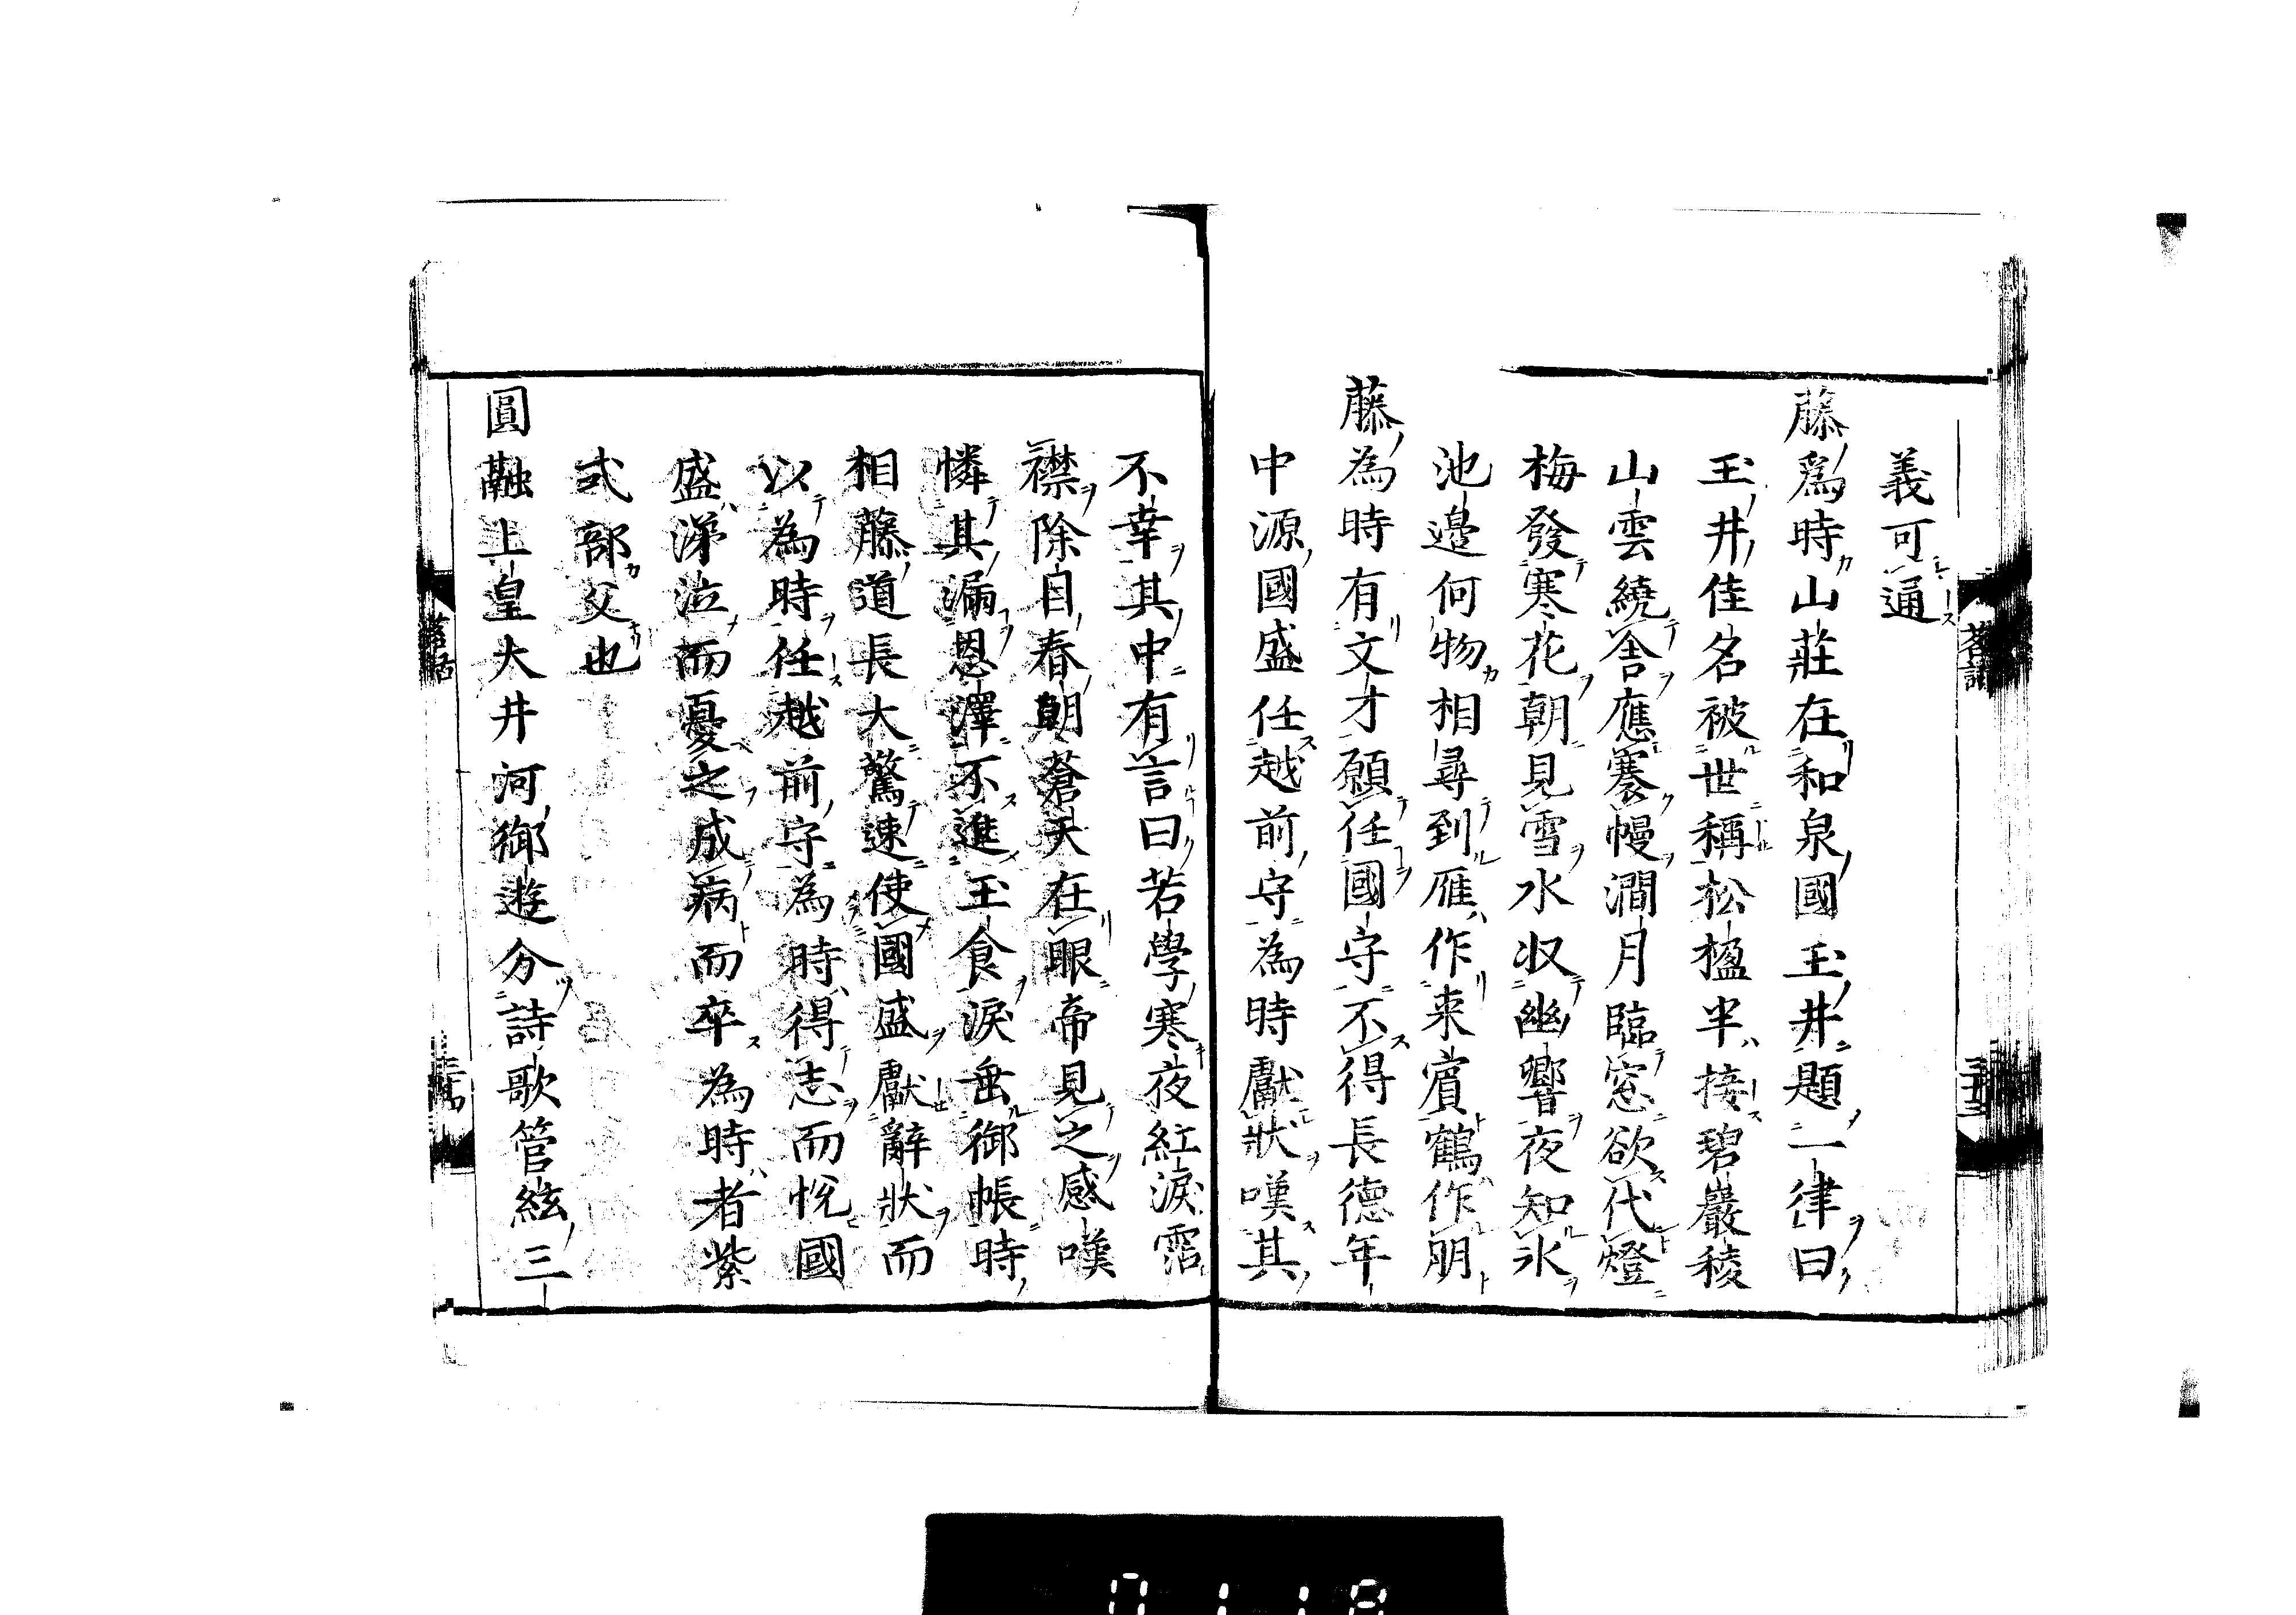 義可通
藤爲時山莊在和泉國玉井題一律曰
玉井佳名被世稱松楹半接碧巖稜
山雲繞舍應褰幔澗月臨窓欲代燈
梅發寒花朝見雪水収幽響夜知氷
池邉何物相尋到雁作来賓鶴作朋
藤為時有文才願任國守不得長德年
中源國盛任越前守為時獻狀嘆其
不幸其中有言曰若學寒夜紅淚霑
襟除目春朝蒼天在眼帝見之感嘆
憐其漏恩澤不進玉食淚垂御帳時
相藤道長大驚速使國盛獻辭狀而
以為時任越前守為時得志而悅國
盛涕泣而憂之成病而卒為時者紫
式部父也
圓融上皇大井河御遊分詩歌管絃三